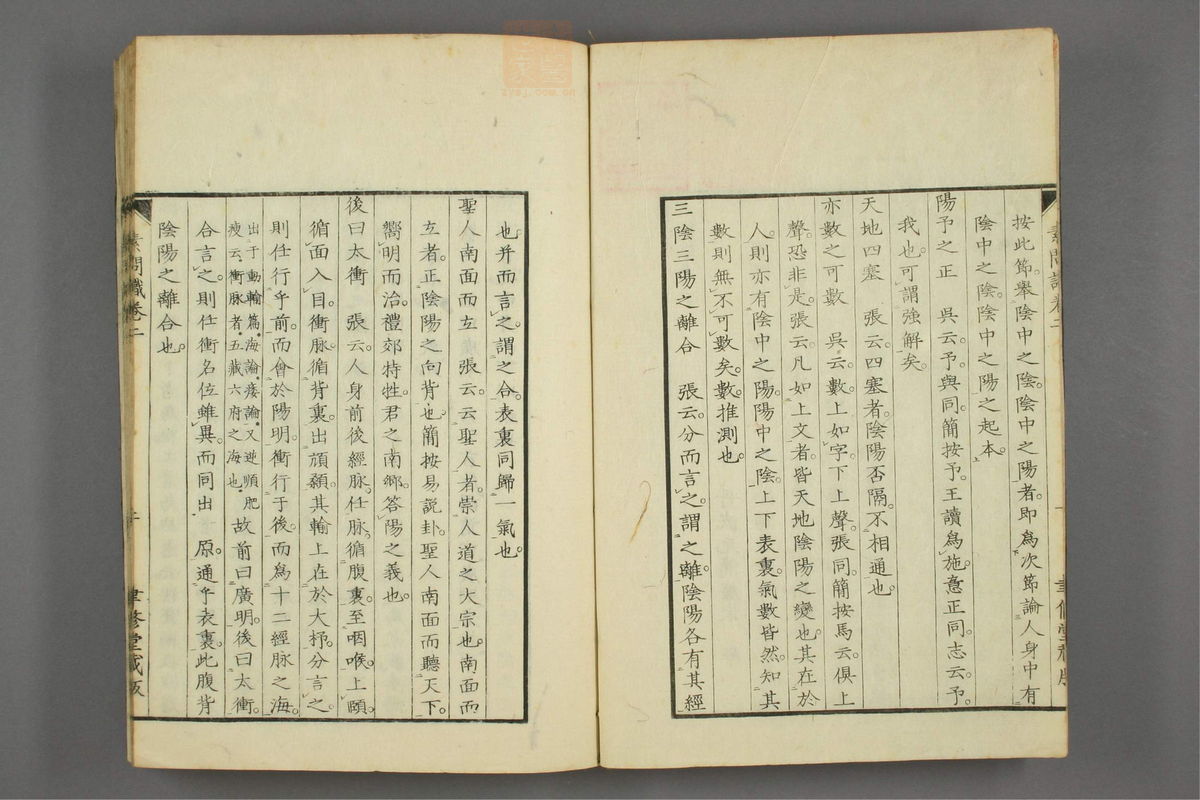 按此節。舉陰中之陰。陰中之陽者。即爲次節論人身中有
陰中之陰。陰中之陽之起本。
陽予之正　吳云。予。與同。簡按予。王讀爲施。意正同。志云。予。
我也。可謂強解矣。
天地四塞　張云。四塞者。陰陽否隔。不相通也。
亦數之可數　吳云。數。上如字。下上聲。張同。簡按馬云。俱上
聲。恐非是。張云。凡如上文者。皆天地陰陽之變也。其在於
人。則亦有陰中之陽。陽中之陰。上下表裏。氣數皆然。知其
數則無不可數矣。數。推測也。
三陰三陽之離合　張云。分而言之。謂之離。陰陽各有其經
也。并而言之。謂之合。表裏同歸一氣也。
聖人南面而立　張云。云聖人者。崇人道之大宗也。南面而
立者。正陰陽之向背也。簡按易說卦。聖人南面而聽天下。
嚮明而治。禮郊特牲。君之南鄉。答陽之義也。
後曰太衝　張云。人身前後經脉。任脉循腹裏。至咽喉。上頤
循面入目。衝脉循背裏。出頏顙。其輸上在於大杼。分言之。
則任行乎前。而會於陽明。衝行于後。而爲十二經脉之海。
出于動輸篇。海論。痿論。又逆順肥
瘦云。衝脉者。五藏六府之海也。
故前曰廣明。後曰太衝。
合言之。則任衝名位雖異。而同出一原。通乎表裏。此腹背
陰陽之離合也。
素問識卷二
二
聿修堂藏版